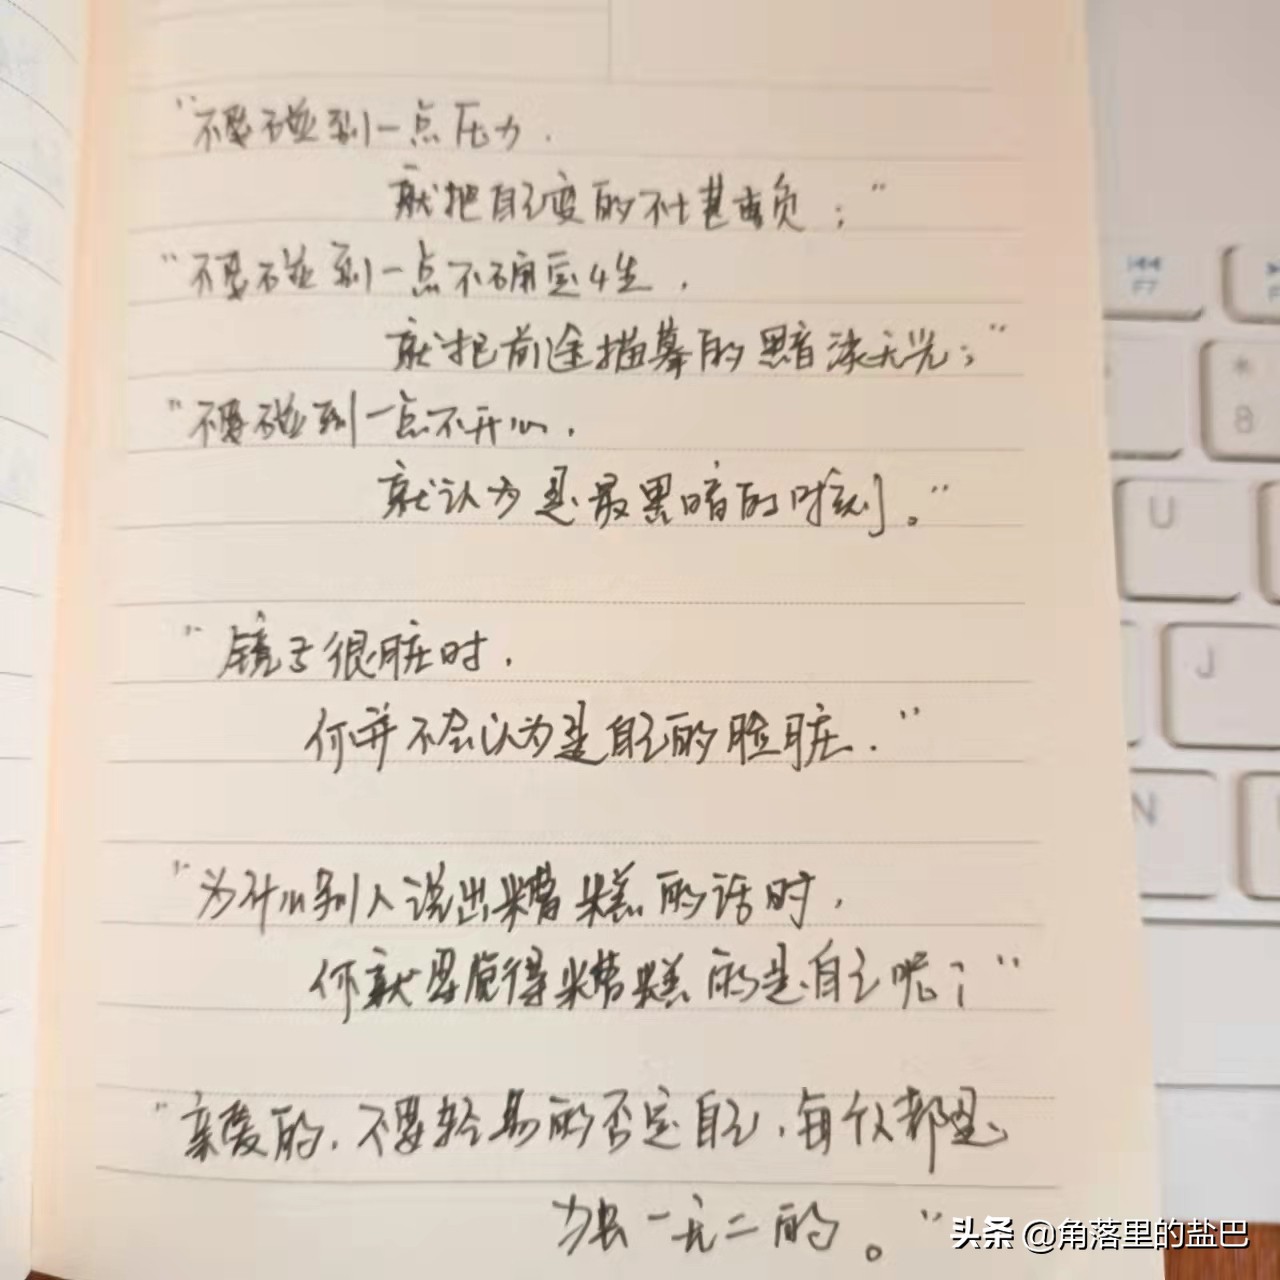 “不要碰到一点压力，
就把自己变的不堪重负；”
“不要碰到一点不确定性，
就把前途描摹的黯淡无光；”
“不要碰到一点不开心，
就认为是最黑暗的时刻。”
“镜子很脏时，
你并不会认为是自己的脸脏．”
“为什么别人说出糟糕的话时，
你就要觉得糟糕的是自己呢？”
“亲爱的，不要轻易的否定自己，每个人都是
独一无二的。”
F7
*
8
U
J
N
头条 @角落里的盐巴